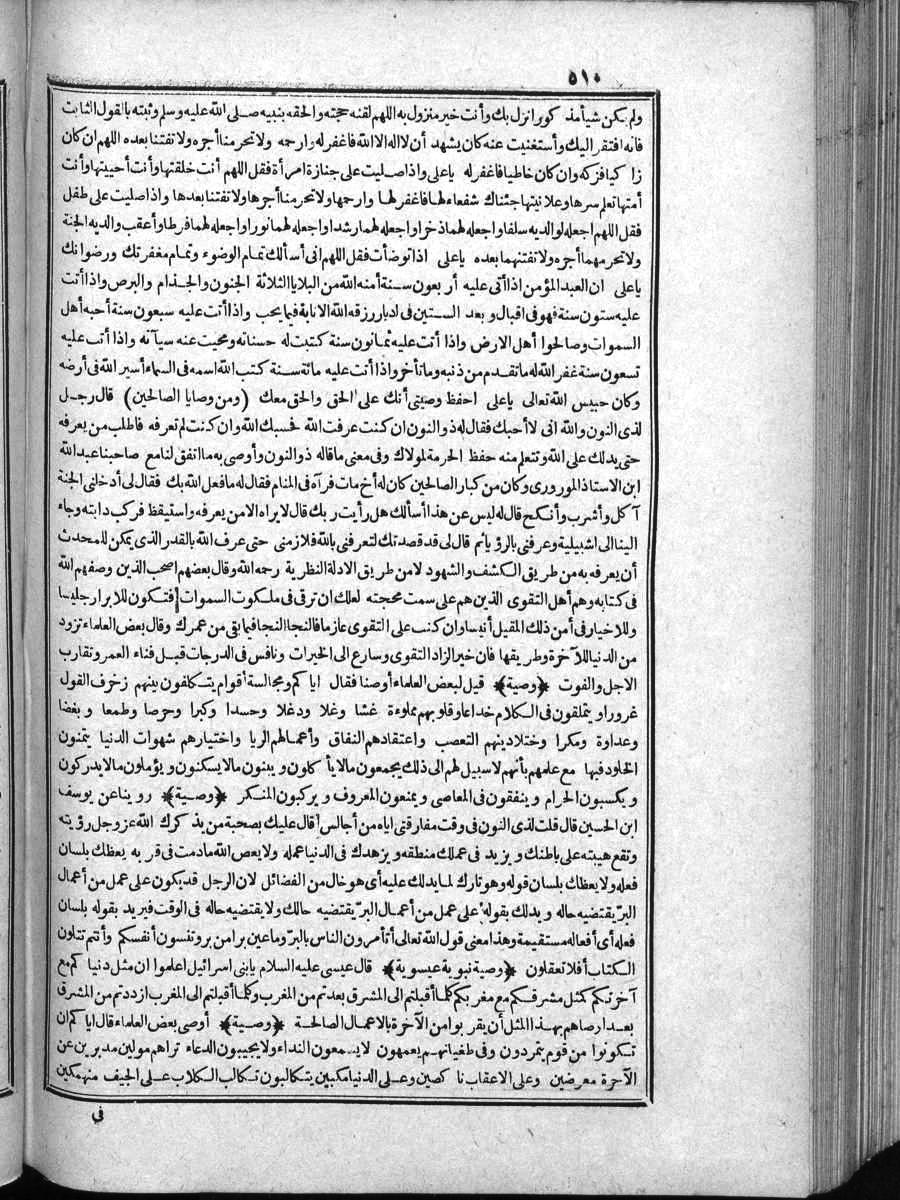 ٥١٠
ولم يكن شيأ مذكورا نزل بك وأنت خير منزول به اللهم لقنه حجته وألحقه بنبيه صلى الله عليه وسلم وثبته بالقول الثابت
فانه افتقر اليك وأستغنيت عنه كان يشهد أن لا اله الا الله فاغفر له وارحمه ولا تحرمنا أجره ولا تفتنا بعده اللهم ان كان
زاكيا فزكه وان كان خاطيا فاغفر له ياعلى واذا صليت على جنازة امرأة فقل اللهم أنت خلقتها وأنت أحييتها وأنت
أمتها تعلم سرها وعلانيتها جئناك شفعاء لها فاغفر لها وارحمها ولا تحرمنا أجرها ولا تفتنا بعدها واذا صليت على طفل
فقل اللهم اجعله لوالديه سلفا واجعله لهما ذخرا واجعله لهما رشدا واجعله لهما نورا واجعله لهما فرطا وأعقب والديه الجنة
ولا تحرمهما أجره ولا تفتنهما بعده ياعلى اذا توضأت فقل اللهم انى أسألك تمام الوضوء وتمام مغفرتك ورضوانك
ياعلى ان العبد المؤمن اذا أتى عليه أربعون سنة أمنه الله من البلايا الثلاثة الجنون والجذام والبرص واذا أتت
عليه ستون سنة فهو فى اقبال وبعد الستين فى ادبار رزقه الله الانابة فيما يحب واذا أتت عليه سبعون سنة أحبه أهل
السموات وصالحوا أهل الارض واذا أتت عليه ثمانون سنة كتبت له حسناته ومحيت عنه سيآته واذا أتت عليه
تسعون سنة غفر الله له ما تقدم من ذنبه وما تأخر واذا أتت عليه مائة سنة كتب الله اسمه فى السماء أسير الله فى أرضه
وكان حبيس الله تعالى ياعلى احفظ وصيتى أنك على الحق والحق معك (ومن وصايا الصالحين) قال رجل
لذى النون والله انى لاأحبك فقال له ذو النون ان كنت عرفت الله فحسبك الله وان كنت لم تعرفه فاطلب من يعرفه
حتى يدلك على الله وتتعلم منه حفظ الحرمة لمولاك وفى معنى ما قاله ذو النون وأوصى به ما اتفق لنا مع صاحبنا عبد الله
ابن الاستاذ المورورى وكان من كبار الصالحين كان له أخ مات فرآه فى المنام فقال له ما فعل الله بك فقال لى أدخلنى الجنة
آكل وأشرب وأنكح قال له ليس عن هذا أسألك هل رأيت ربك قال لا يراه الامن يعرفه واستيقظ فركب دابته وجاء
الينا الى اشبيلية وعرفنى بالرؤيا ثم قال لى قد قصدتك لتعرفنى بالله فلازمنى حتى عرف الله بالقدر الذى يمكن للمحدث
أن يعرفه به من طريق الكشف والشهود لا من طريق الادلة النظرية رحمه الله وقال بعضهم اصحب الذين وصفهم الله
فى كتابه وهم أهل التقوى الذين هم على سمت محجته لعلك ان ترقى فى ملكوت السموات فتكون للابرار جليسا
وللاخيار فى أمن ذلك المقيل أنيسا وان كنت على التقوى عازما فالنجا النجا فيما بقى من عمرك وقال بعض العلماء تزود
من الدنيا للآخرة وطريقها فان خير الزاد التقوى وسارع الى الخيرات ونافس فى الدرجات قبل فناء العمر وتقارب
الاجل والفوت ﴿وصية﴾ قيل لبعض العلماء أوصنا فقال اياكم ومجالسة أقوام يتكلفون بينهم زخرف القول
غرورا ويتملقون فى الكلام خداعا وقلوبهم مملوءة غشا وغلا ودغلا وحسدا وكبرا وحرصا وطمعا وبغضا
وعداوة ومكرا وختلا دينهم التعصب واعتقادهم النفاق وأعمالهم الريا واختيارهم شهوات الدنيا يتمنون
الخلود فيها مع علمهم بأنهم لا سبيل لهم الى ذلك يجمعون مالا يأكلون ويبنون مالا يسكنون ويؤملون مالا يدركون
ويكسبون الحرام وينفقون فى المعاصى ويمنعون المعروف ويركبون المنكر ﴿وصية﴾ روينا عن يوسف
ابن الحسين قال قلت لذى النون فى وقت مفارقتى اياه من أجالس قال عليك بصحبة من يذكرك الله عز وجل رؤيته
وتقع هيبته على باطنك ويزيد فى عملك منطقه ويزهدك فى الدنيا عمله ولا يعصى الله مادمت فى قربه يعظك بلسان
فعله ولا يعظك بلسان قوله وهو تارك لما يدلك عليه أى هو خال من الفضائل لان الرجل قد يكون على عمل من أعمال
البر يقتضيه حاله ويدلك بقوله على عمل من أعمال البر يقتضيه حالك ولا يقتضيه حاله فى الوقت فيريد بقوله بلسان
فعله أى أفعاله مستقيمة وهذا معنى قول الله تعالى أتأمرون الناس بالبر وما عين برا من بر وتنسون أنفسكم وأنتم تتلون
الكتاب أفلا تعقلون ﴿وصية نبوية عيسوية﴾ قال عيسى عليه السلام يابنى اسرائيل اعلموا ان مثل دنياكم مع
آخرتكم كمثل مشرقكم مع مغربكم كلما أقبلتم الى المشرق بعدتم من المغرب وكلما أقبلتم الى المغرب ازددتم من المشرق
بعدا وصاهم بهذا المثل أن يقربوا من الآخرة بالاعمال الصالحة ﴿وصية﴾ أوصى بعض العلماء قال اياكم ان
تكونوا من قوم يتمردون وفى طغيانهم يعمهون لا يسمعون النداء ولا يجيبون الدعاء تراهم مولين مدبرين عن
الآخرة معرضين وعلى الاعقاب ناكصين وعلى الدنيا مكبين يتكالبون تكالب الكلاب على الجيف منهمكين
فى